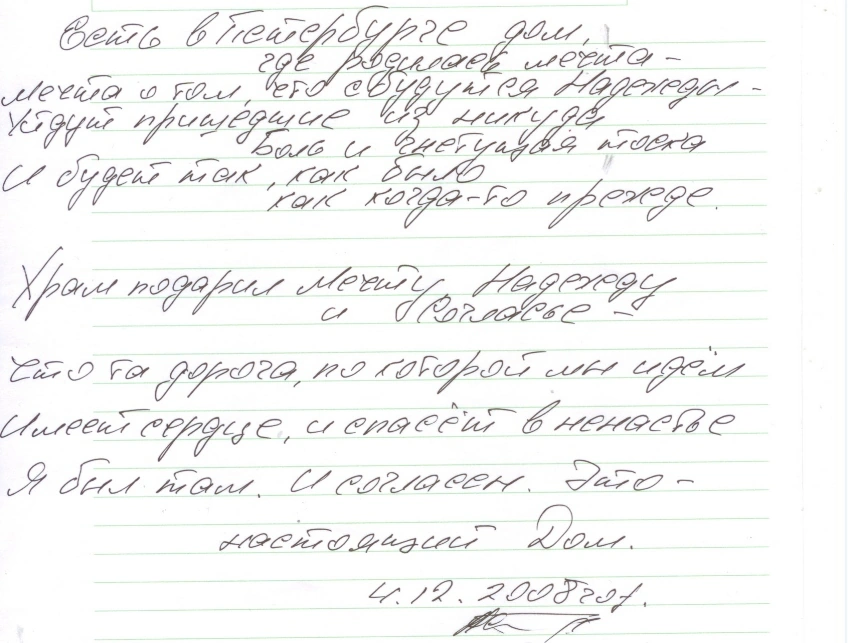 Есть в Петербурге дом,
где родилась мечта-
Мечта о том, что сбудутся Надежды -
Уйдут пришедшие из никуда
Боль и гнетущая тоска
И будет так, как было
как когда-то прежде.
Храм подарил Мечту, Надежду
и Согласье -
Что та дорога, по которой мы идём
Имеет сердце, и спасёт в ненастье
Я был там. И согласен. Это -
настоящий Дом.
4.12.2008 год.